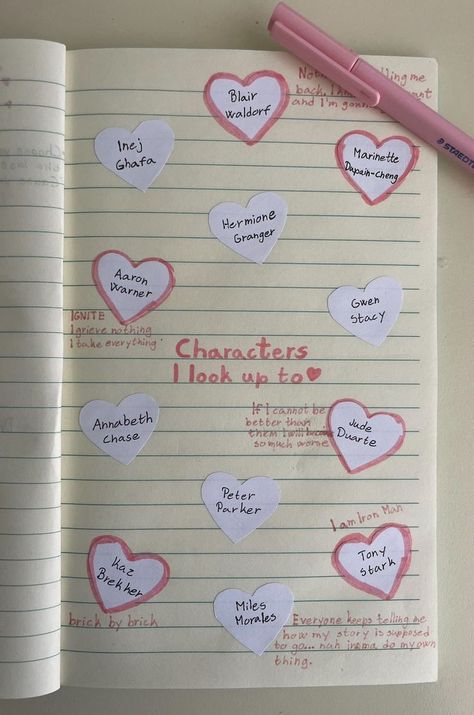 Blair
Waldorf
lling me
back. I
and I'm
Inej
Ghafa
Marinette
Dupain-cheng
Hermione
Granger
Aaron
Warner
Gwen
Stacy
IGNITE
I grieve nothing
I take everything
Characters
I look up to
If I cannot be
better than
them I will
so much worse
Jude
Duarte
Annabeth
chase
Peter
Parker
I am Iron Man
Tony
Stark
Kaz
Brekker
brick by brick
Miles
Morales
Everyone keeps telling me
how my story is supposed
to go... nah imma do my own
thing.
STAEDT